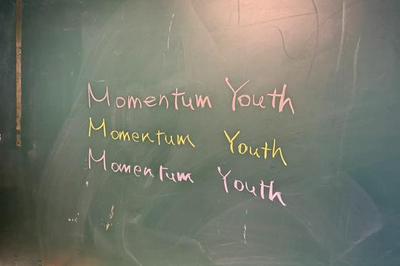 Momentum Youth
Momentum Youth
Momentum Youth